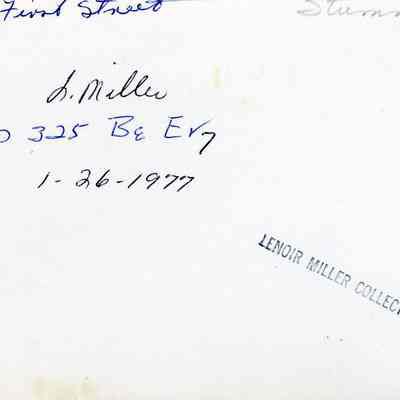 First Street
L. Miller
325 Be Ev7
1-26-1977
LENOIR MILLER COLLEC